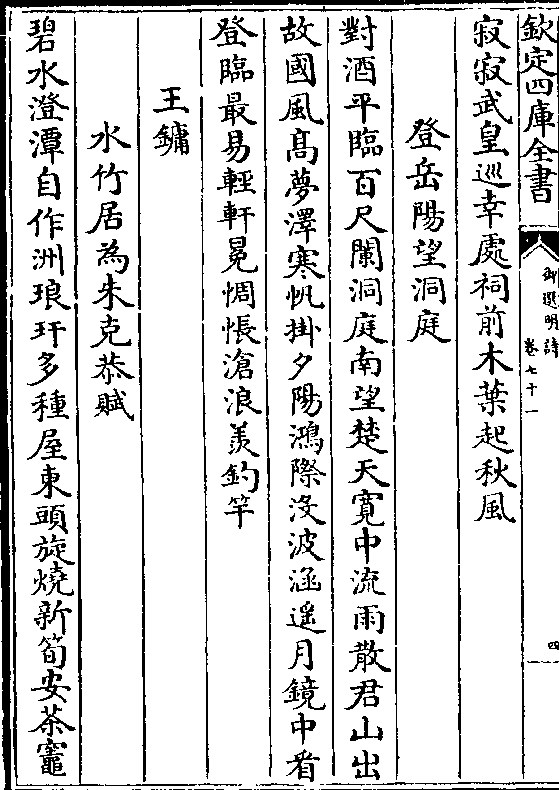 欽定四庫全書
御選明詩
卷七十一
四
寂寂武皇巡幸處祠前木葉起秋風
登岳陽望洞庭
對酒平臨百尺闌洞庭南望楚天寛中流雨散君山出
故國風髙夢澤寒帆掛夕陽鴻際没波涵遥月鏡中看
登臨最易輕軒冕惆悵滄浪羡釣竿
王鏞
水竹居為朱克恭賦
碧水澄潭自作洲琅玕多種屋東頭旋燒新筍安茶竈